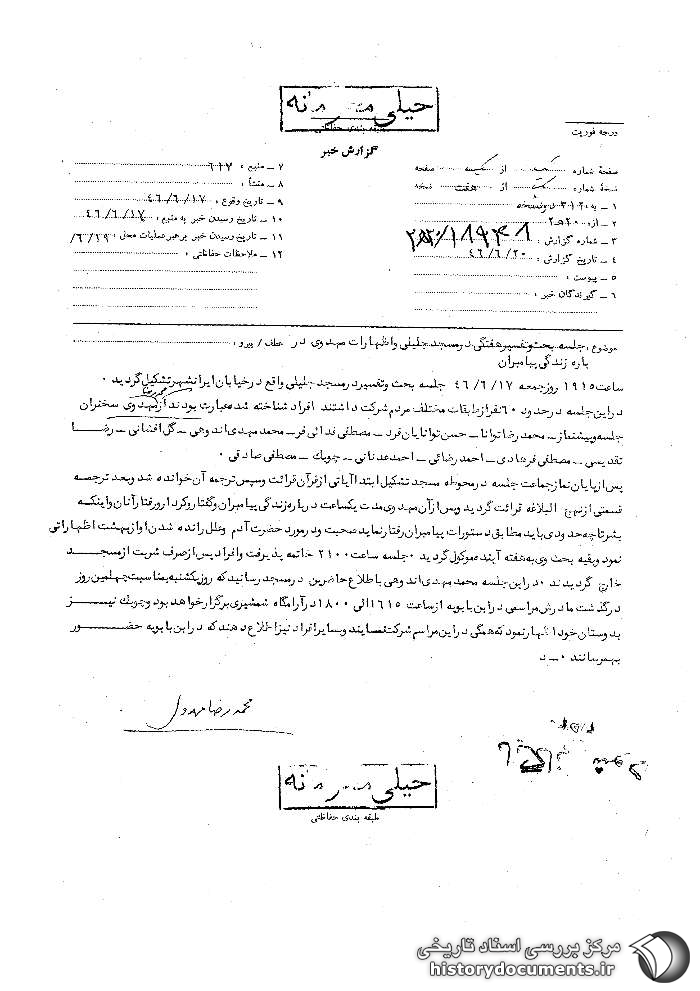 خیلی محرمانه
طبقه بندی حفاظتی
گزارش خبر
درجه فوریت
صفحهٔ شماره از صفحه
نسخهٔ شماره از هفت نسخه
۱ – به : ۳۱۲ دونسخه
۲ – از : ۲۰ هـ ۲
۳ – شماره گزارش :
۴ – تاریخ گزارش : ۴۶/۶/۲۰
۵ – پیوست :
۶ – گیرندگان خبر :
۷ – منبع : ۶۱۷
۸ – منشأ :
۹ – تاریخ وقوع : ۴۶/۶/۱۷
۱۰ – تاریخ رسیدن خبر به منبع : ۴۶/۶/۱۷
۱۱ – تاریخ رسیدن خبر برهبر عملیات محلی :
۱۲ – ملاحظات حفاظتی :
موضوع : جلسه بحث وتفسیر هفتگی در مسجد جلیلی واظهارات مهدوی در عطف / پیرو :
باره زندگی پیامبران
ساعت ۱۹۱۵ روز جمعه ۴۶/۶/۱۷ جلسه بحث وتفسیر در مسجد جلیلی واقع در خیابان ایرانشهر تشکیل گردید ۰
محمد رضا
در این جلسه در حدود ۶۰ نفر از طبقات مختلف مردم شرکت داشتند افراد شناخته شده عبارت بودند از مهدوی سخنران
جلسه وپیشنماز – محمد رضا توانا – حسن توانایان فرد – مصطفی فدائی فر – محمد مهدی اندوهی – گل افشانی – رضا
تقدیسی – مصطفی فرهادی – احمد رضائی – احمد عدنانی – چوبک – مصطفی صادقی ۰
پس از پایان نماز جماعت جلسه در محوطه مسجد تشکیل ابتدا آیاتی از قرآن قرائت وسپس ترجمه آن خوانده شد وبعد ترجمه
قسمتی از نهج البلاغه قرائت گردید وپس از آن مهدوی مدت یکساعت درباره زندگی پیامبران وگفتار وکردار ورفتار آنان واینکه
بشر تا چه حدودی باید مطابق دستورات پیامبران رفتار نماید صحبت ودر مورد حضرت آدم وعلل رانده شدن او از بهشت اظهاراتی
نمود وبقیه بحث وی به هفته آینده موکول گردید ۰ جلسه ساعت ۲۱۰۰ خاتمه پذیرفت وافراد پس از صرف شربت از مسجد
خارج گردیدند ۰ در این جلسه محمد مهدی اندوهی با طلاع حاضرین در مسجد رسانید که روز یکشنبه بمناسبت چهلمین روز
درگذشت مادرش مراسمی در ابن بابویه از ساعت ۱۶۱۵ الی ۱۸۰۰ در آرامگاه شمشیری برگزار خواهد بود وچوبک نیز
بدوستان خود اظهار نمود که همگی در این مراسم شرکت نمایند وبسایر افراد نیز اطلاع دهند که در ابن بابویه حضور
بهم رسانند ۰ – د
محمد رضا مهدوی
خیلی محرمانه
طبقه بندی حفاظتی
مرکز بررسی اسناد تاریخی
historydocuments.ir